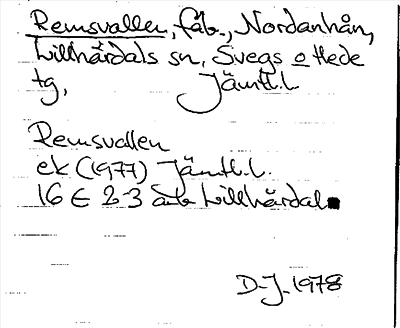 Remsvallen, fäb., Nordanhån,
Lillhärdals sn, Svegs o Hede
tg, Jämtl.l
Remsvallen
ek (1977) Jämtl.l.
16 E 2-3 a-b Lillhärdal
D-J-1978